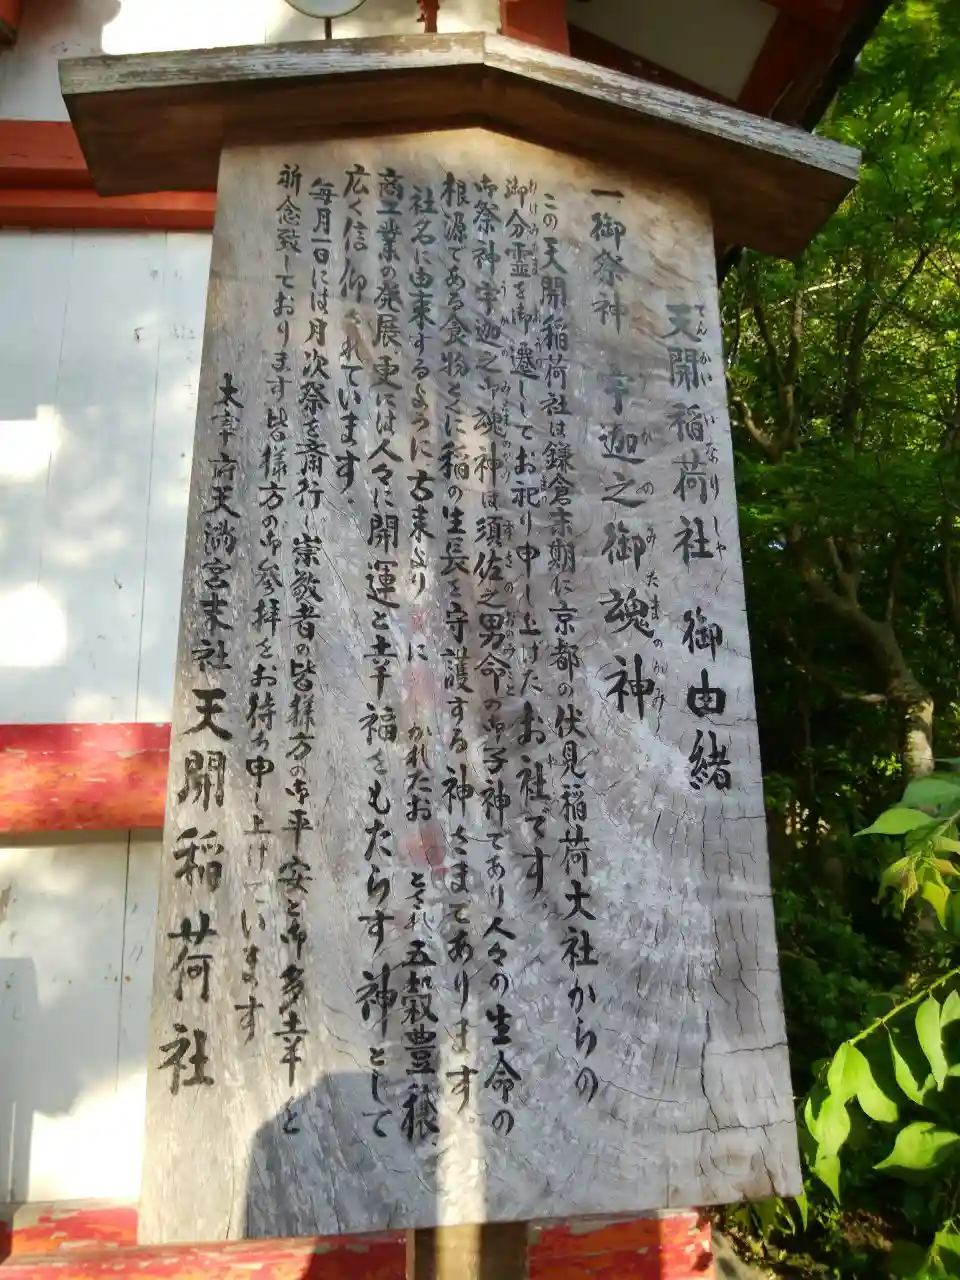 天開稲荷社 御由緒
てんかいいなりしゃ
一御祭神 宇迦之御魂神
うかのみたまのかみ
この天開稲荷社は鎌倉末期に京都の伏見稲荷大社からの
御分霊を御遷ししてお祀り申し上げたお社です。
御祭神宇迦之御魂神は須佐之男命の御子神であり人々の生命の
根源である食物とくに稲の生長を守護する神さまであります。
社名に由来するように古来より に かれたお とされ、五穀豊穣、
商工業の発展、更には人々に開運と幸福をもたらす神として
広く信仰されています。
毎月一日には月次祭を斎行し崇敬者の皆様方の御平安と御多幸と
祈念致しております皆様方の御参拝をお待ち申し上げています
太宰府天満宮末社 天開稲荷社